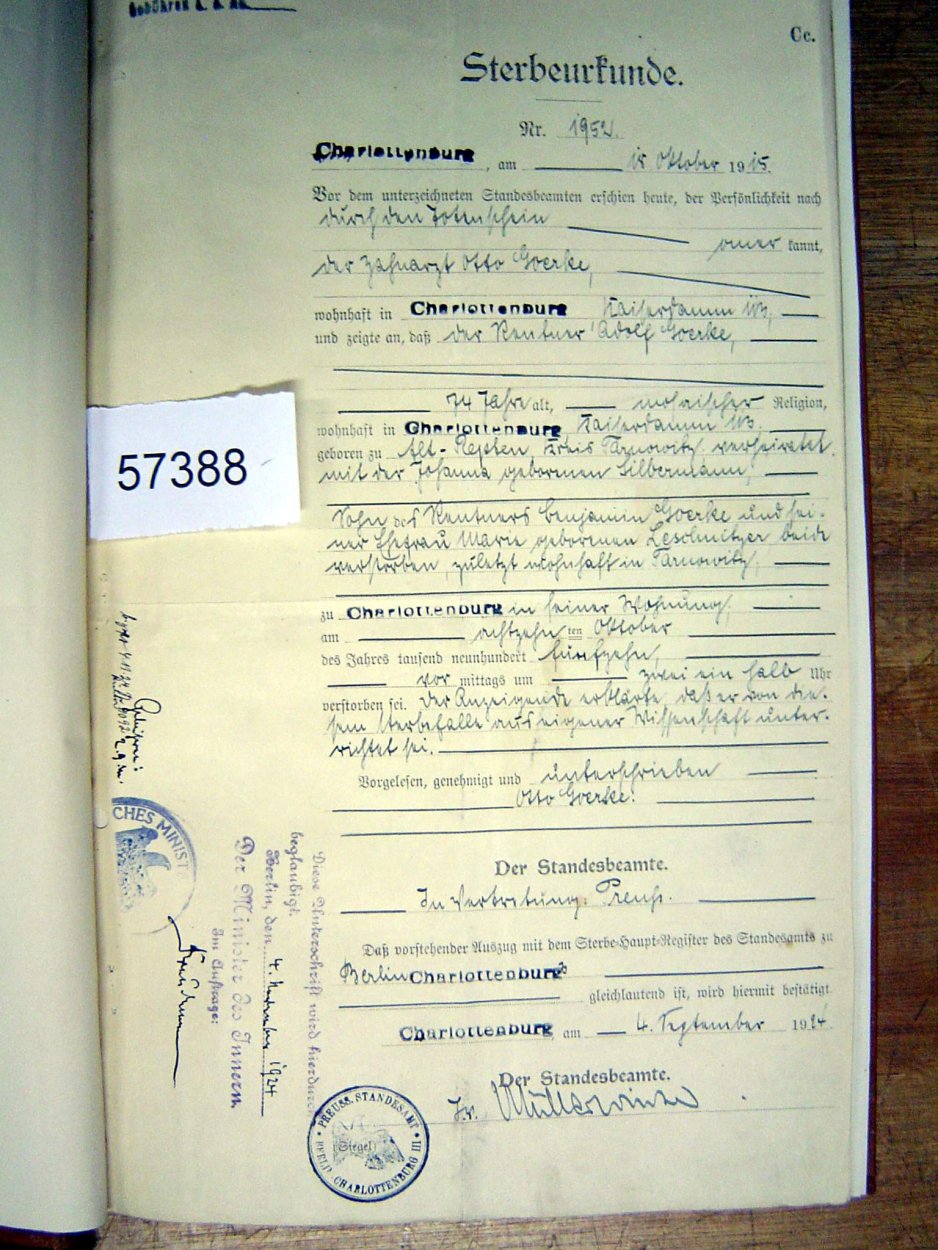 Cc.
Sterbeurkunde.
Nr. 1952.
Charlottenburg, am 18. Oktober 1915.
Vor dem unterzeichneten Standesbeamten erschien heute, der Persönlichkeit nach
durch den Totenschein
aner kannt,
der Zahnarzt Otto Goerke,
wohnhaft in Charlottenburg Kaiserdamm 113,
und zeigte an, daß der Rentner Adolf Goerke,
74 Jahre alt, mosaischer Religion,
wohnhaft in Charlottenburg Kaiserdamm 113.
geboren zu Alt-Repten, Kreis Tarnowitz, verheiratet
mit der Johanna geborenen Silbermann,
Sohn des Rentners Benjamin Goerke und sei-
ner Ehefrau Marie geborenen Leschnitzer beide
verstorben, zuletzt wohnhaft in Tarnowitz,
zu Charlottenburg in seiner Wohnung.
am achtzehn ten Oktober
des Jahres tausend neunhundert fünfzehn,
vor mittags um zwei ein halb Uhr
verstorben sei. Der Anzeigende erklärte, daß er von die-
sem Sterbefalle aus eigener Wissenschaft unter-
richtet sei.
Vorgelesen, genehmigt und unterschrieben
Otto Goerke.
Der Standesbeamte.
In Vertretung: Preuß.
Daß vorstehender Auszug mit dem Sterbe-Haupt-Register des Standesamts zu
Berlin Charlottenburg
gleichlautend ist, wird hiermit bestätigt
Charlottenburg am 4. September 1924.
Der Standesbeamte.
Iv.
PREUSS. STANDESAMT III
BERLIN CHARLOTTENBURG
(Siegel)
57388
CHES MINIST
Diese Unterschrift wird hierdurch
beglaubigt.
Berlin, den 4. November 1924
Der Minister des Innern
Im Auftrage: